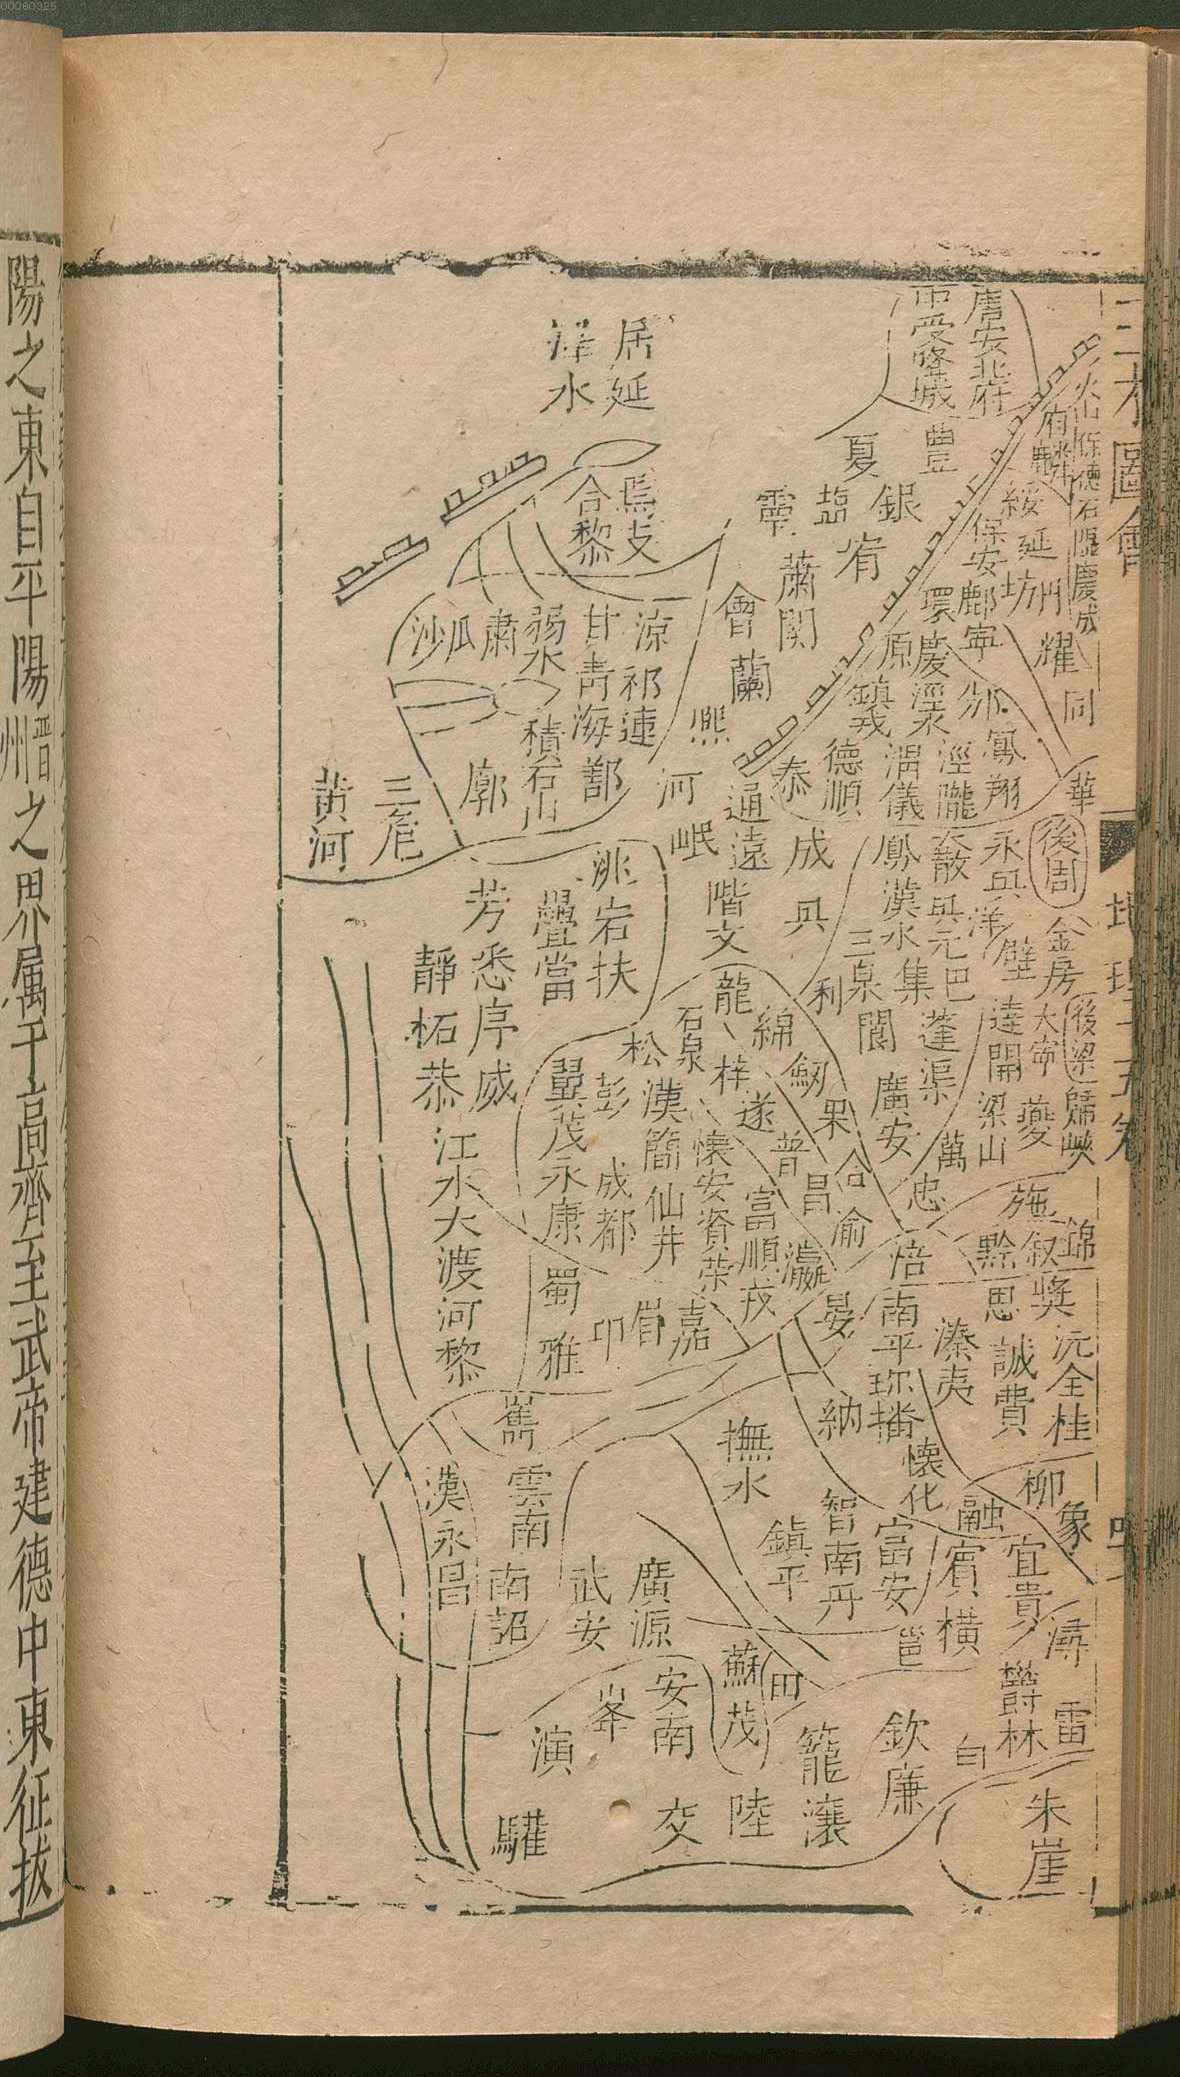 00060325
三才圖會
地理十五卷
唐安北府
中受降城
火山保德石隰慶成
府麟
豊
綏延
保安鄜坊
丹
耀
同
華
夏
銀
塩
宥
靈
蕭関
會
蘭
熙
河
岷
環慶涇水
寧
邠
原
鎮戎
鳳翔
涇隴
渭儀
德順
秦
通遠
成
階文
居延
澤水
焉支
合黎
涼
祁連
甘
青海
鄯
弱水
積石山
肅
瓜
沙
廓
三危
黃河
後周
永興
洋
大散
興元巴
鳳漢水集
三泉
興
利
閬
蓬渠
廣安
金房
壁
達開
梁山
萬
忠
大寧
夔
後梁
歸峽
洮宕扶
疊當
芳悉序威
靜柘恭
江水大渡河黎
龍
綿
劒
果
合
渝
石泉
松
梓
遂
普
昌
瀘
漢簡仙井
懷安資榮
富順
嘉
眉
卭
彭
成都
翼茂永康
蜀
雅
施
黔
思
叙
錦
獎
沅全桂
誠費
涪
南平
播
溱夷
晏
納
懷化
嶲
雲南
南詔
漢永昌
撫水
智南丹
鎮平
富安
融
柳
象
宜貴
賓橫
邕
潯
鬱林
雷
白
欽廉
朱崖
廣源
武安
蘇茂
田
籠瀼
陸
安南
交
峯
演
驩
陽之東自平陽晋州之界属于高齊至武帝建德中東征拔